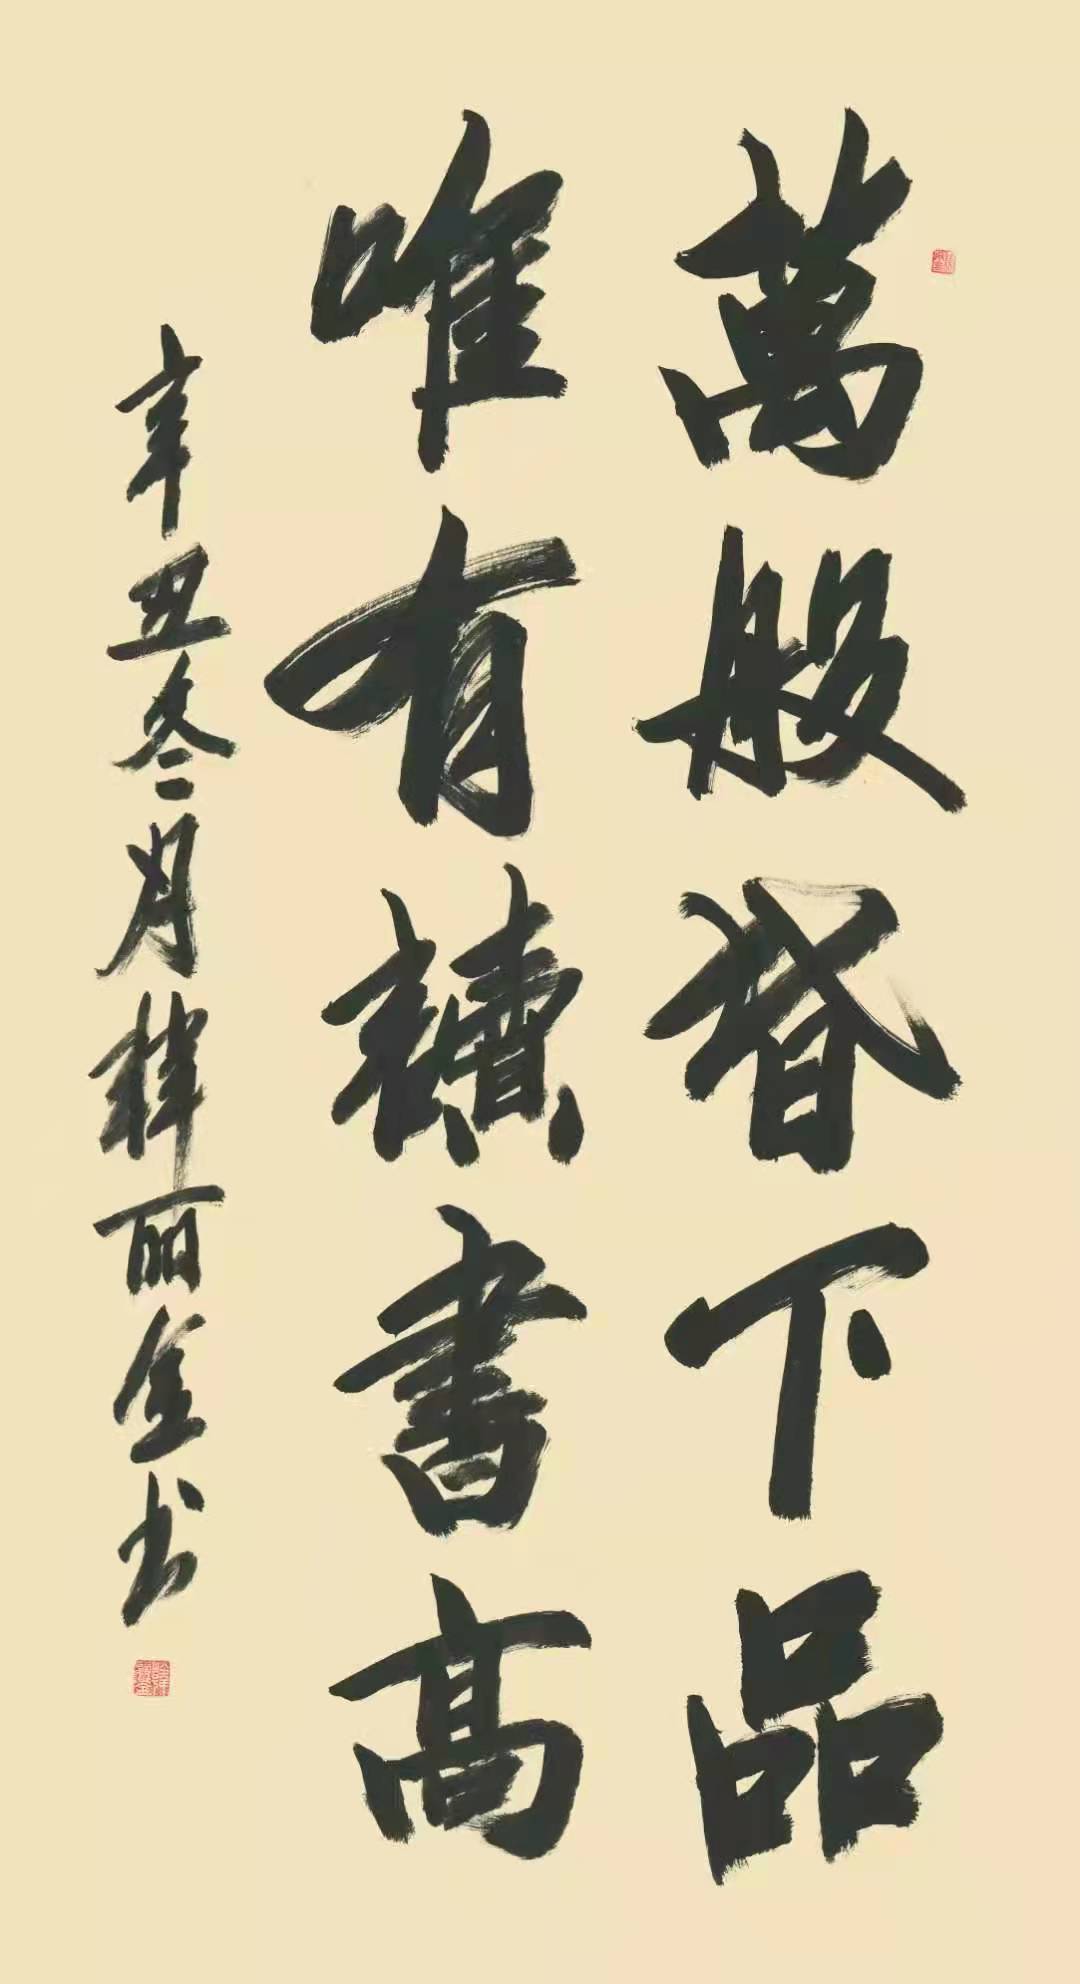 萬般皆下品
唯有讀書高
辛丑冬月韓丽金书